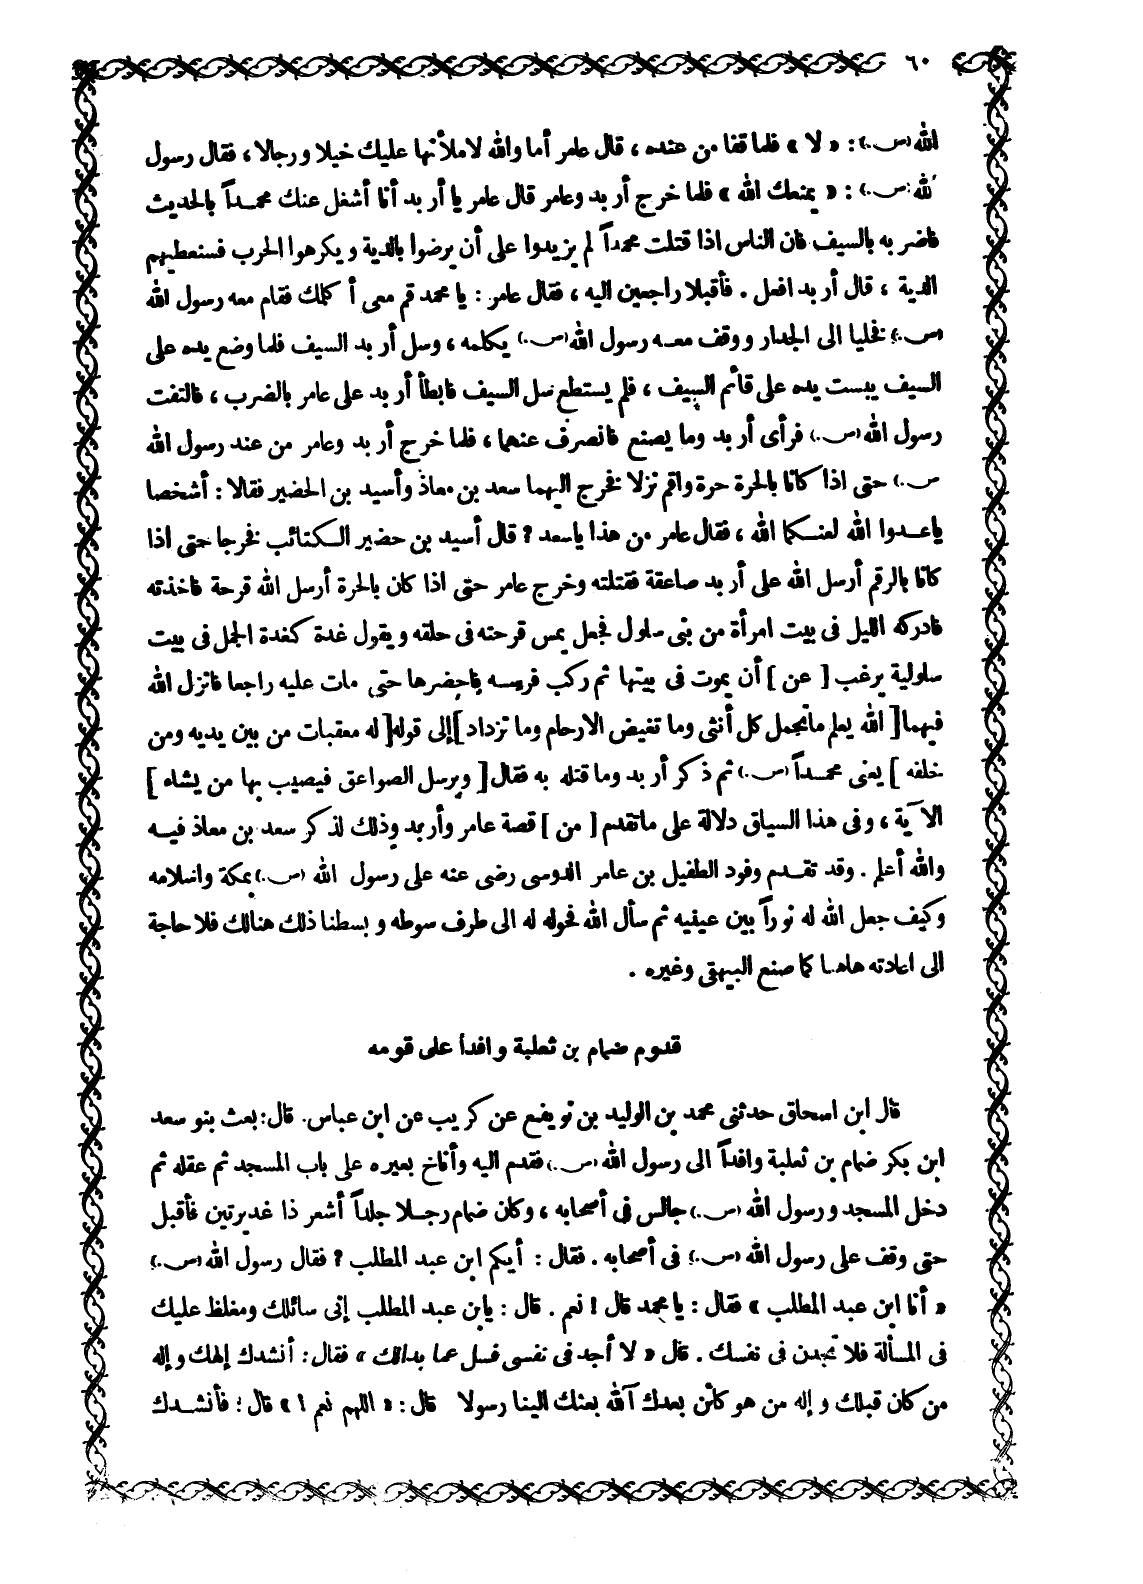 ٦٠
الله (ص.) : « لا » فلما قفا من عنده ، قال عامر أما والله لاملأنها عليك خيلا ورجالا ، فقال رسول
لله (ص.) : « يمنعك الله » فلما خرج أربد وعامر قال عامر يا أربد أنا أشغل عنك محمداً بالحديث
فاضربه بالسيف فان الناس اذا قتلت محمداً لم يزيدوا على أن يرضوا بالدية ويكرهوا الحرب فسنعطيهم
الدية ، قال أربد افعل . فأقبلا راجعين اليه ، فقال عامر : يا محمد قم معى أكلمك فقام معه رسول الله
(ص.) فخليا الى الجدار ووقف معه رسول الله (ص.) يكلمه ، وسل أربد السيف فلما وضع يده على
السيف يبست يده على قائم السيف ، فلم يستطع سل السيف فابطأ أربد على عامر بالضرب ، فالتفت
رسول الله (ص.) فرأى أربد وما يصنع فانصرف عنهما ، فلما خرج أربد وعامر من عند رسول الله
ص.) حتى اذا كانا بالحرة حرة واقم نزلا فخرج اليهما سعد بن معاذ وأسيد بن الحضير فقالا : أشخصا
ياعدوا الله لعنكما الله ، فقال عامر من هذا ياسعد ؟ قال أسيد بن حضير الكتائب فخرجا حتى اذا
كانا بالرقم أرسل الله على أربد صاعقة فقتلته وخرج عامر حتى اذا كان بالحرة أرسل الله قرحة فاخذته
فادركه الليل فى بيت امرأة من بنى سلول فجعل يمس قرحته فى حلقه ويقول غدة كغدة الجمل فى بيت
سلولية يرغب [ عن ] أن يموت فى بيتها ثم ركب فرسه فاحضرها حتى مات عليه راجعا فانزل الله
فيهما [ الله يعلم ماتحمل كل أنثى وما تغيض الارحام وما تزداد ] إلى قوله [ له معقبات من بين يديه ومن
خلفه ] يعنى محمداً (ص.) ثم ذكر أربد وما قتله به فقال [ ويرسل الصواعق فيصيب بها من يشاء ]
الآية ، وفى هذا السياق دلالة على ماتقدم [ من ] قصة عامر وأربد وذلك لذكر سعد بن معاذ فيه
والله أعلم . وقد تقدم وفود الطفيل بن عامر الدوسى رضى عنه على رسول الله (ص.) بمكة واسلامه
وكيف جعل الله له نوراً بين عينيه ثم سأل الله فحوله له الى طرف سوطه وبسطنا ذلك هنالك فلا حاجة
الى اعادته هاهنا كما صنع البيهقى وغيره .
قدوم ضمام بن ثعلبة وافدأ على قومه
قال ابن اسحاق حدثنى محمد بن الوليد بن نويفع عن كريب عن ابن عباس. قال : بعث بنو سعد
ابن بكر ضمام بن ثعلبة وافداً الى رسول الله (ص.) فقدم اليه وأناخ بعيره على باب المسجد ثم عقله ثم
دخل المسجد ورسول الله (ص.) جالس فى أصحابه ، وكان ضمام رجلا جلداً أشعر ذا غديرتين فأقبل
حتى وقف على رسول الله (ص.) فى أصحابه . فقال : أيكم ابن عبد المطلب ؟ فقال رسول الله (ص.)
« أنا ابن عبد المطلب » فقال : يا محمد قال ! نعم . قال : يابن عبد المطلب إنى سائلك ومغلظ عليك
فى المسألة فلا تجدن فى نفسك . قال « لا أجد فى نفسى فسل عما بدالك » فقال : أنشدك إلهك وإله
من كان قبلك وإله من هو كائن بعدك آلله بعثك الينا رسولا قال : « اللهم نعم ! » قال : فأنشدك